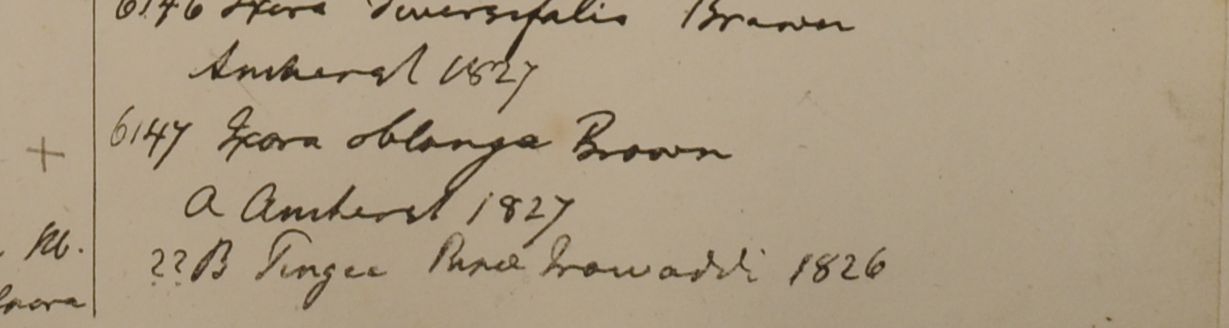 6146 Ixora diversifolia Brown
Amherst 1827
6147 Ixora oblonga Brown
+
A Amherst 1827
??B Tingee Irawaddi 1826